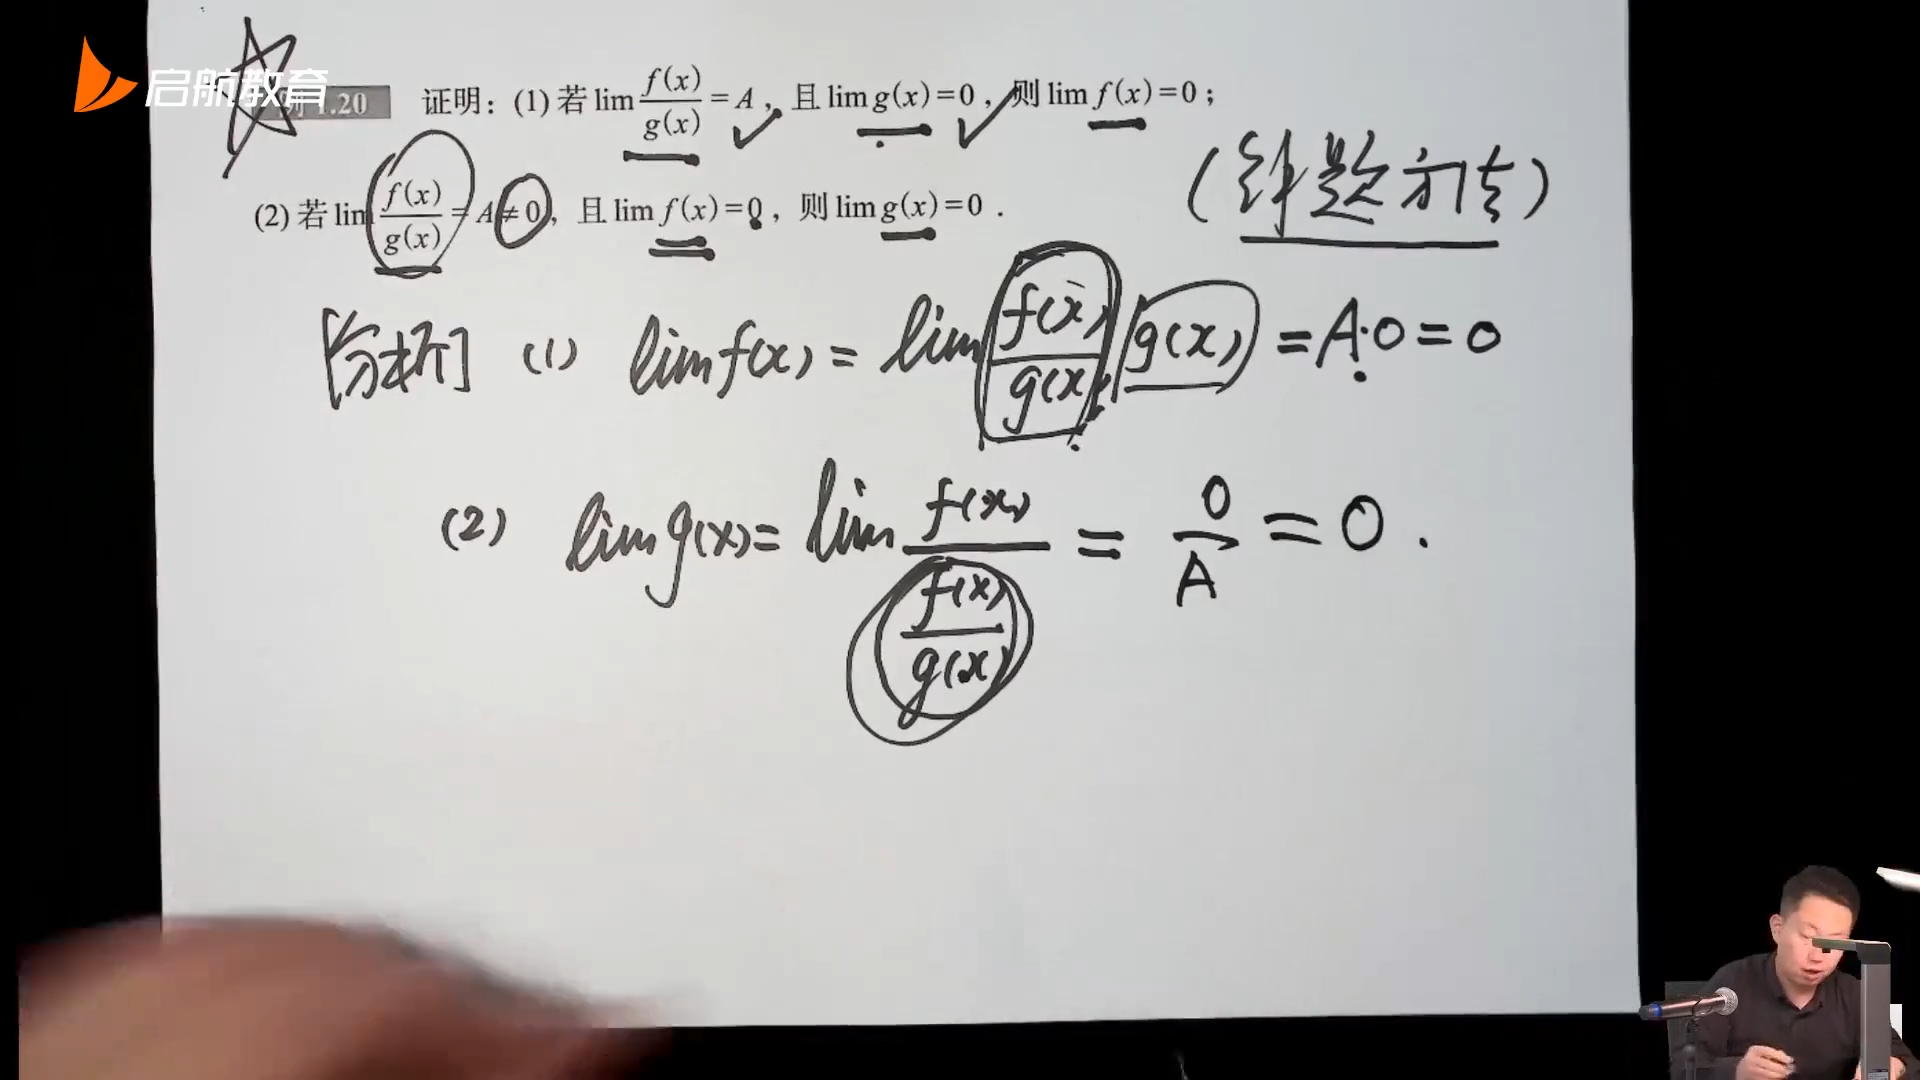 启航教育
例1.20 证明：(1) 若 lim f(x)/g(x) = A，且 lim g(x)=0，则 lim f(x)=0；
(2) 若 lim f(x)/g(x) = A≠0，且 lim f(x)=0，则 lim g(x)=0．
(解题方法)
[分析] (1) lim f(x) = lim f(x)/g(x) · g(x) = A·0 = 0
(2) lim g(x) = lim f(x)/(f(x)/g(x)) = 0/A = 0．